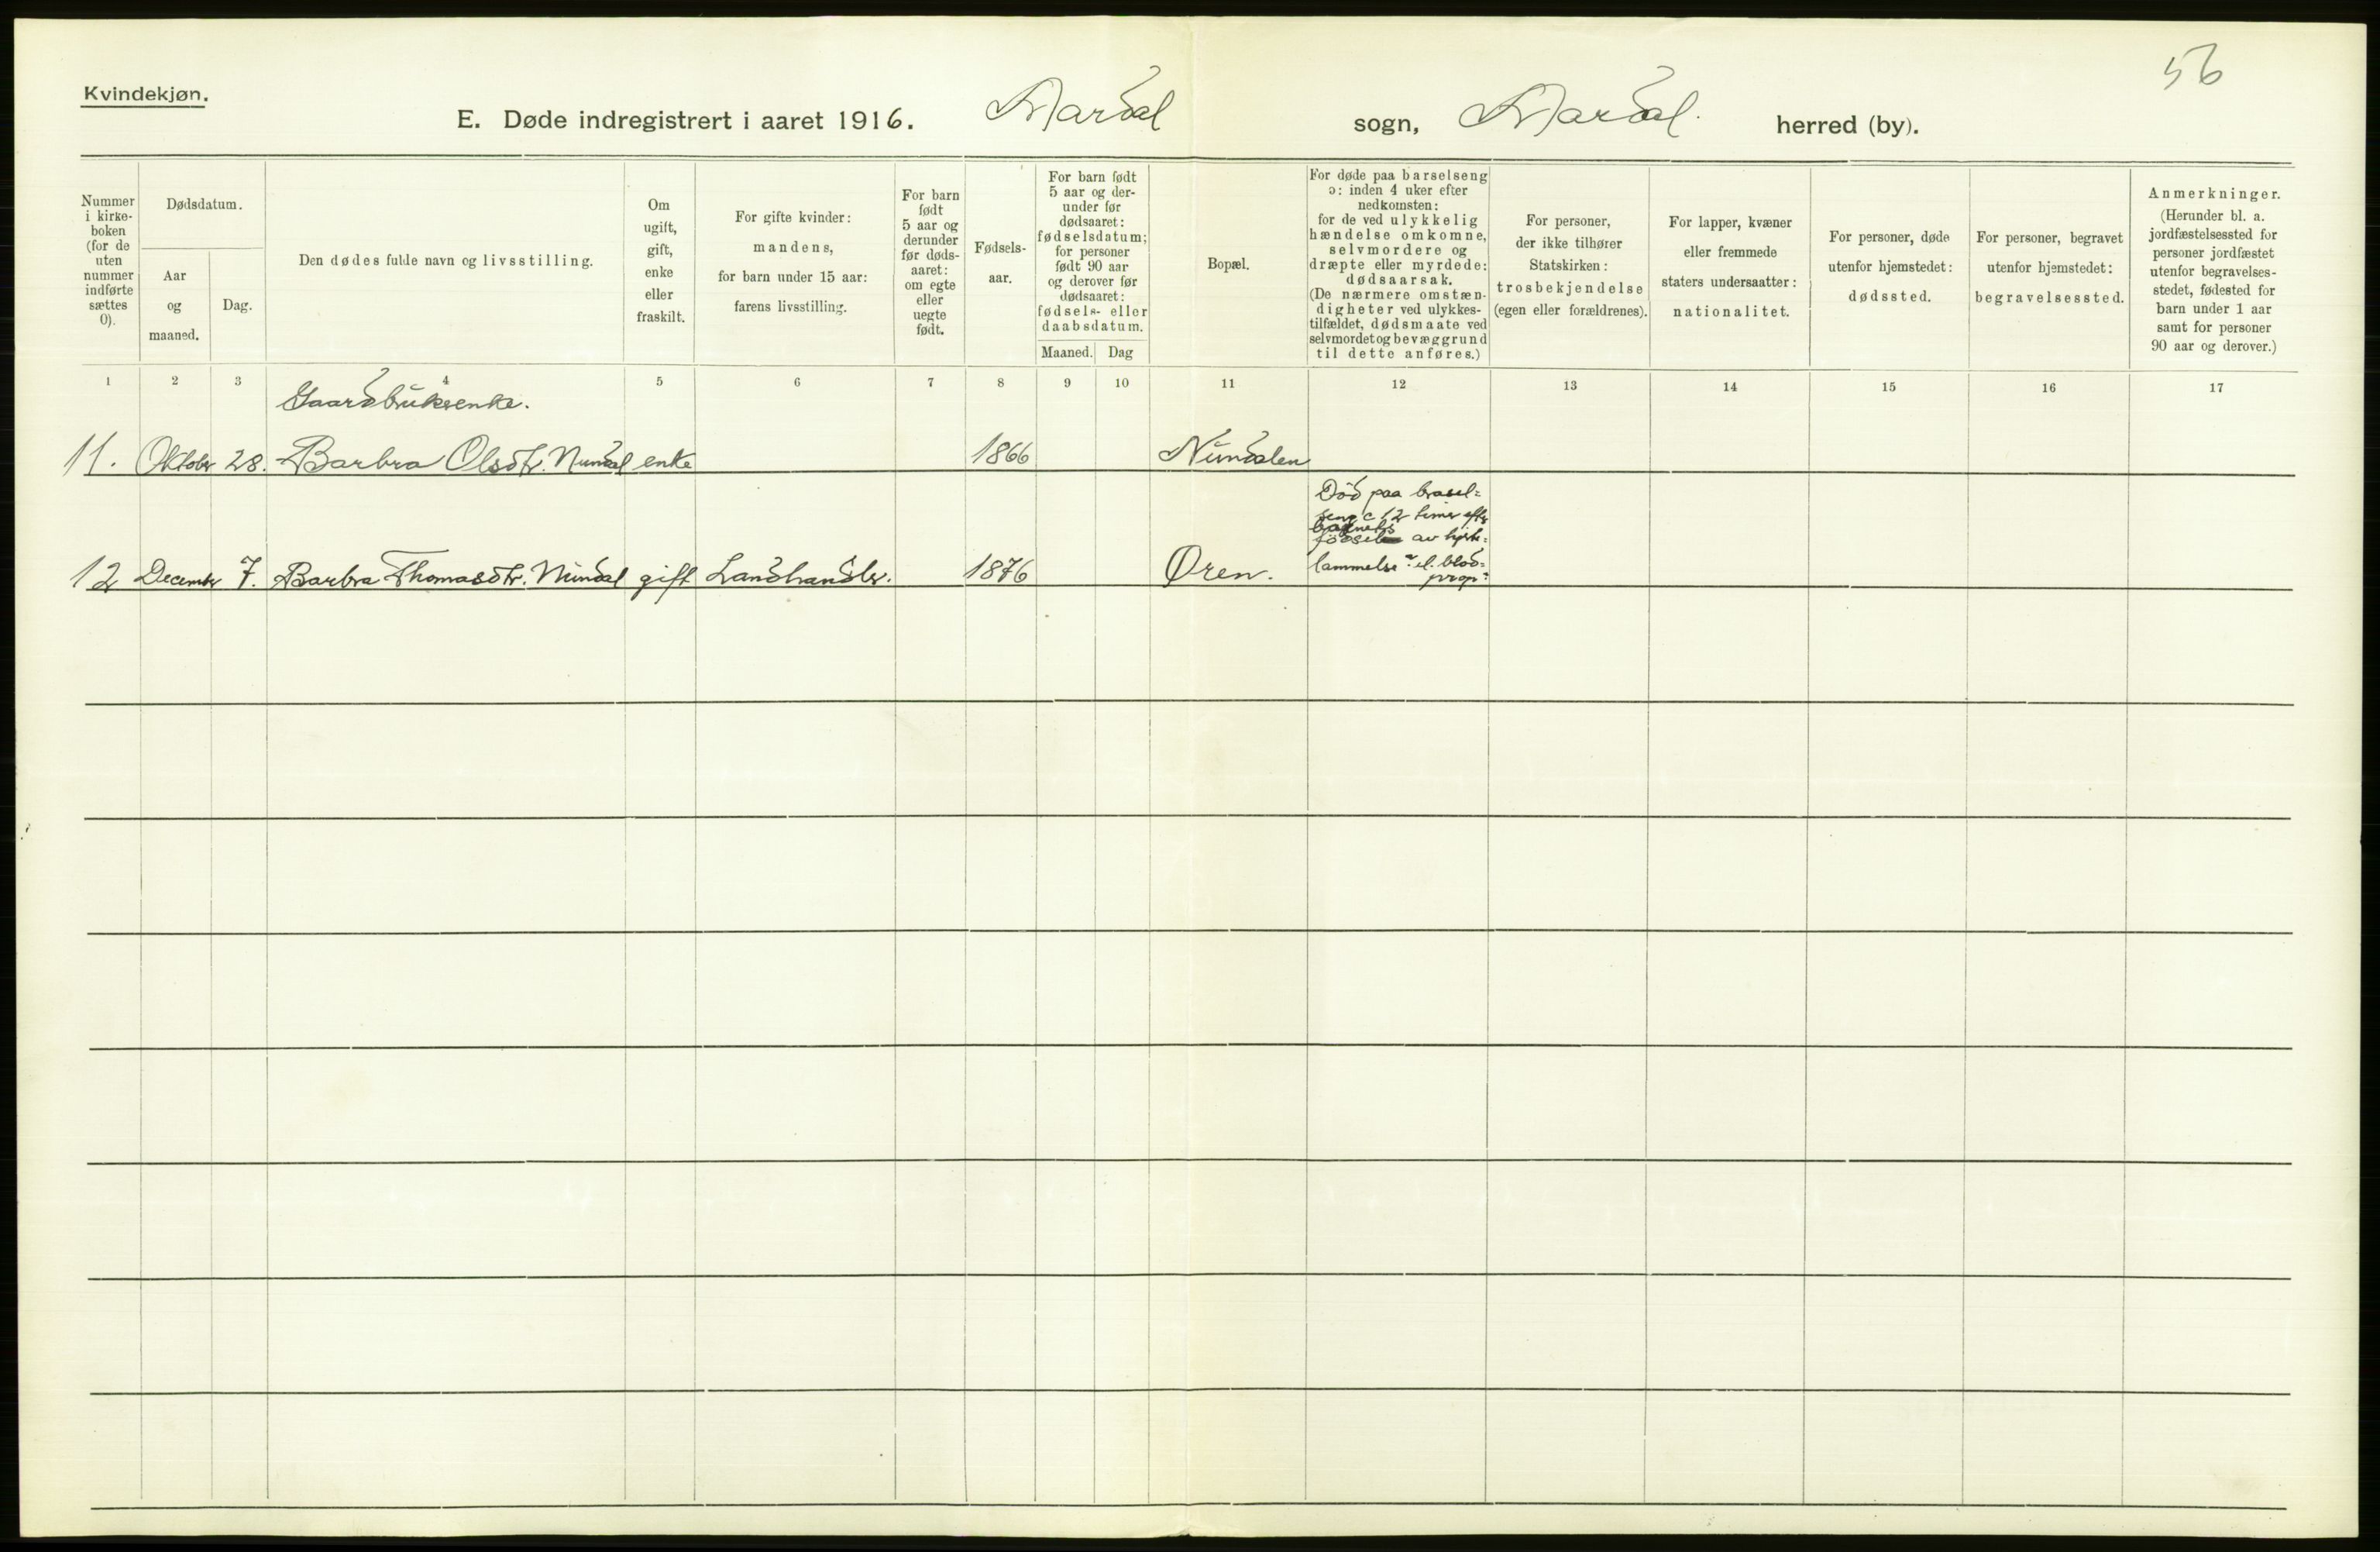 56
Kvindekjøn.
E. Døde indregistrert i aaret 1916. Aardal sogn, Aardal. herred (by).
Nummer
i kirke-
boken
(for de
uten
nummer
indførte
sættes
0).
Dødsdatum.
Aar
og
maaned.
Dag.
Den dødes fulde navn og livsstilling.
Om
ugift,
gift,
enke
eller
fraskilt.
For gifte kvinder:
mandens,
for barn under 15 aar:
farens livsstilling.
For barn
født
5 aar og
derunder
før døds-
aaret:
om egte
eller
uegte
født.
Fødsels-
aar.
For barn født
5 aar og der-
under før
dødsaaret:
fødselsdatum;
for personer
født 90 aar
og derover før
dødsaaret:
fødsels- eller
daabsdatum.
Maaned. Dag
Bopæl.
For døde paa barselseng
ɔ: inden 4 uker efter
nedkomsten:
for de ved ulykkelig
hændelse omkomne,
selvmordere og
dræpte eller myrdede:
dødsaarsak.
(De nærmere omstæn-
digheter ved ulykkes-
tilfældet, dødsmaate ved
selvmordet og bevæggrund
til dette anføres.)
For personer,
der ikke tilhører
Statskirken:
trosbekjendelse
(egen eller forældrenes).
For lapper, kvæner
eller fremmede
staters undersaatter:
nationalitet.
For personer, døde
utenfor hjemstedet:
dødssted.
For personer, begravet
utenfor hjemstedet:
begravelsessted.
Anmerkninger.
(Herunder bl. a.
jordfæstelsessted for
personer jordfæstet
utenfor begravelses-
stedet, fødested for
barn under 1 aar
samt for personer
90 aar og derover.)
1 2 3 4 5 6 7 8 9 10 11 12 13 14 15 16 17
Gaardbruksenke.
11. Oktober 28. Barbra Olsdtr. Nundal enke 1866 Nundalen
Død paa brasel=
seng c 12 timer efter
barnets
fødsel av hjerte=
12 December 7. Barbra Thomasdtr. Nundal gift Landhandler. 1876 Øren. lammelse? el. blod=
prop?